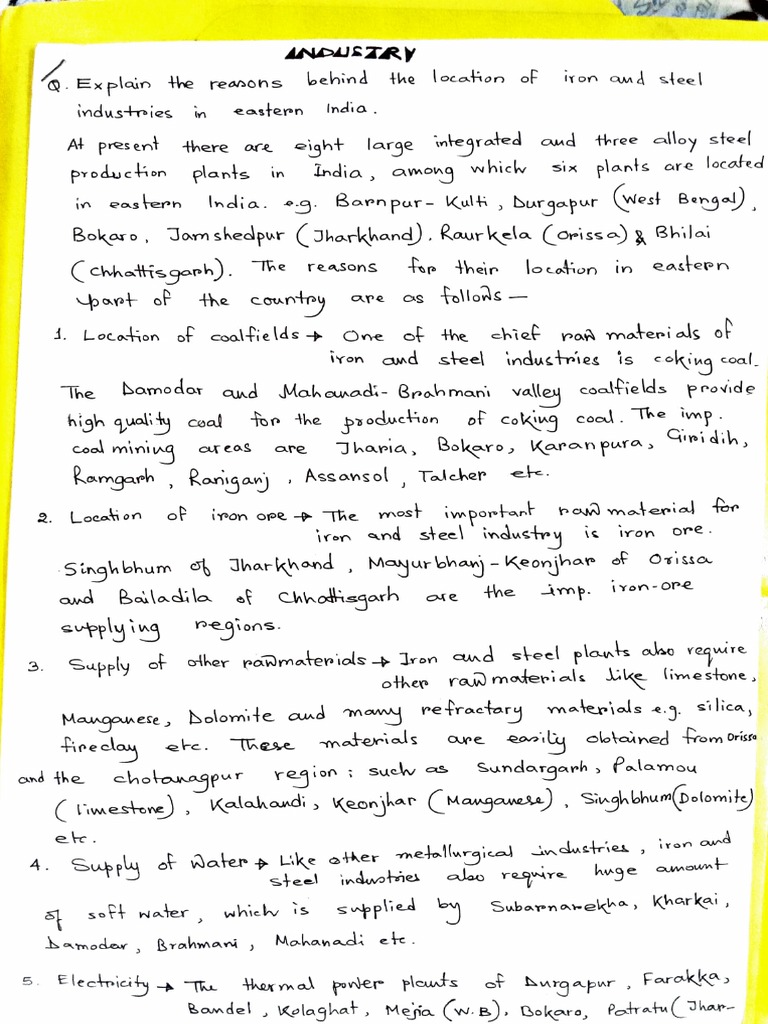 INDUSTRY
Q. Explain the reasons behind the location of iron and steel
industries in eastern India.
At present there are eight large integrated and three alloy steel
production plants in India, among which six plants are located
in eastern India. e.g. Barnpur-Kulti, Durgapur (West Bengal),
Bokaro, Jamshedpur (Jharkhand). Raurkela (Orissa) & Bhilai
(Chhattisgarh). The reasons for their location in eastern
part of the country are as follows —
1. Location of coalfields → One of the chief raw materials of
iron and steel industries is coking coal.
The Damodar and Mahanadi-Brahmani valley coalfields provide
high quality coal for the production of coking coal. The imp.
coal mining areas are Jharia, Bokaro, Karanpura, Giridih,
Ramgarh, Raniganj, Assansol, Talcher etc.
2. Location of iron ore → The most important raw material for
iron and steel industry is iron ore.
Singhbhum of Jharkhand, Mayurbhanj-Keonjhar of Orissa
and Bailadila of Chhattisgarh are the imp. iron-ore
supplying regions.
3. Supply of other rawmaterials → Iron and steel plants also require
other raw materials like limestone,
Manganese, Dolomite and many refractory materials e.g. silica,
fireclay etc. These materials are easily obtained from Orissa
and the chotanagpur region; such as Sundargarh, Palamou
(limestone), Kalahandi, Keonjhar (Manganese), Singhbhum (Dolomite)
etc.
4. Supply of Water → Like other metallurgical industries, iron and
steel industries also require huge amount
of soft water, which is supplied by Subarnarekha, Kharkai,
Damodar, Brahmani, Mahanadi etc.
5. Electricity → The thermal power plants of Durgapur, Farakka,
Bandel, Kolaghat, Mejia (W.B), Bokaro, Patratu (Jhar-